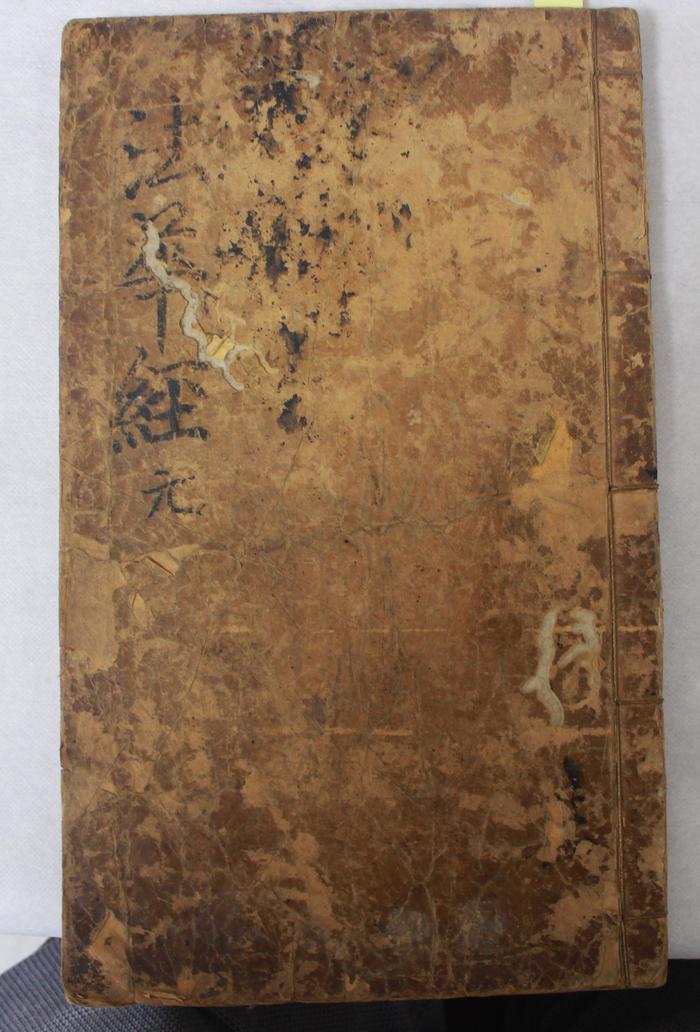 法華經 元